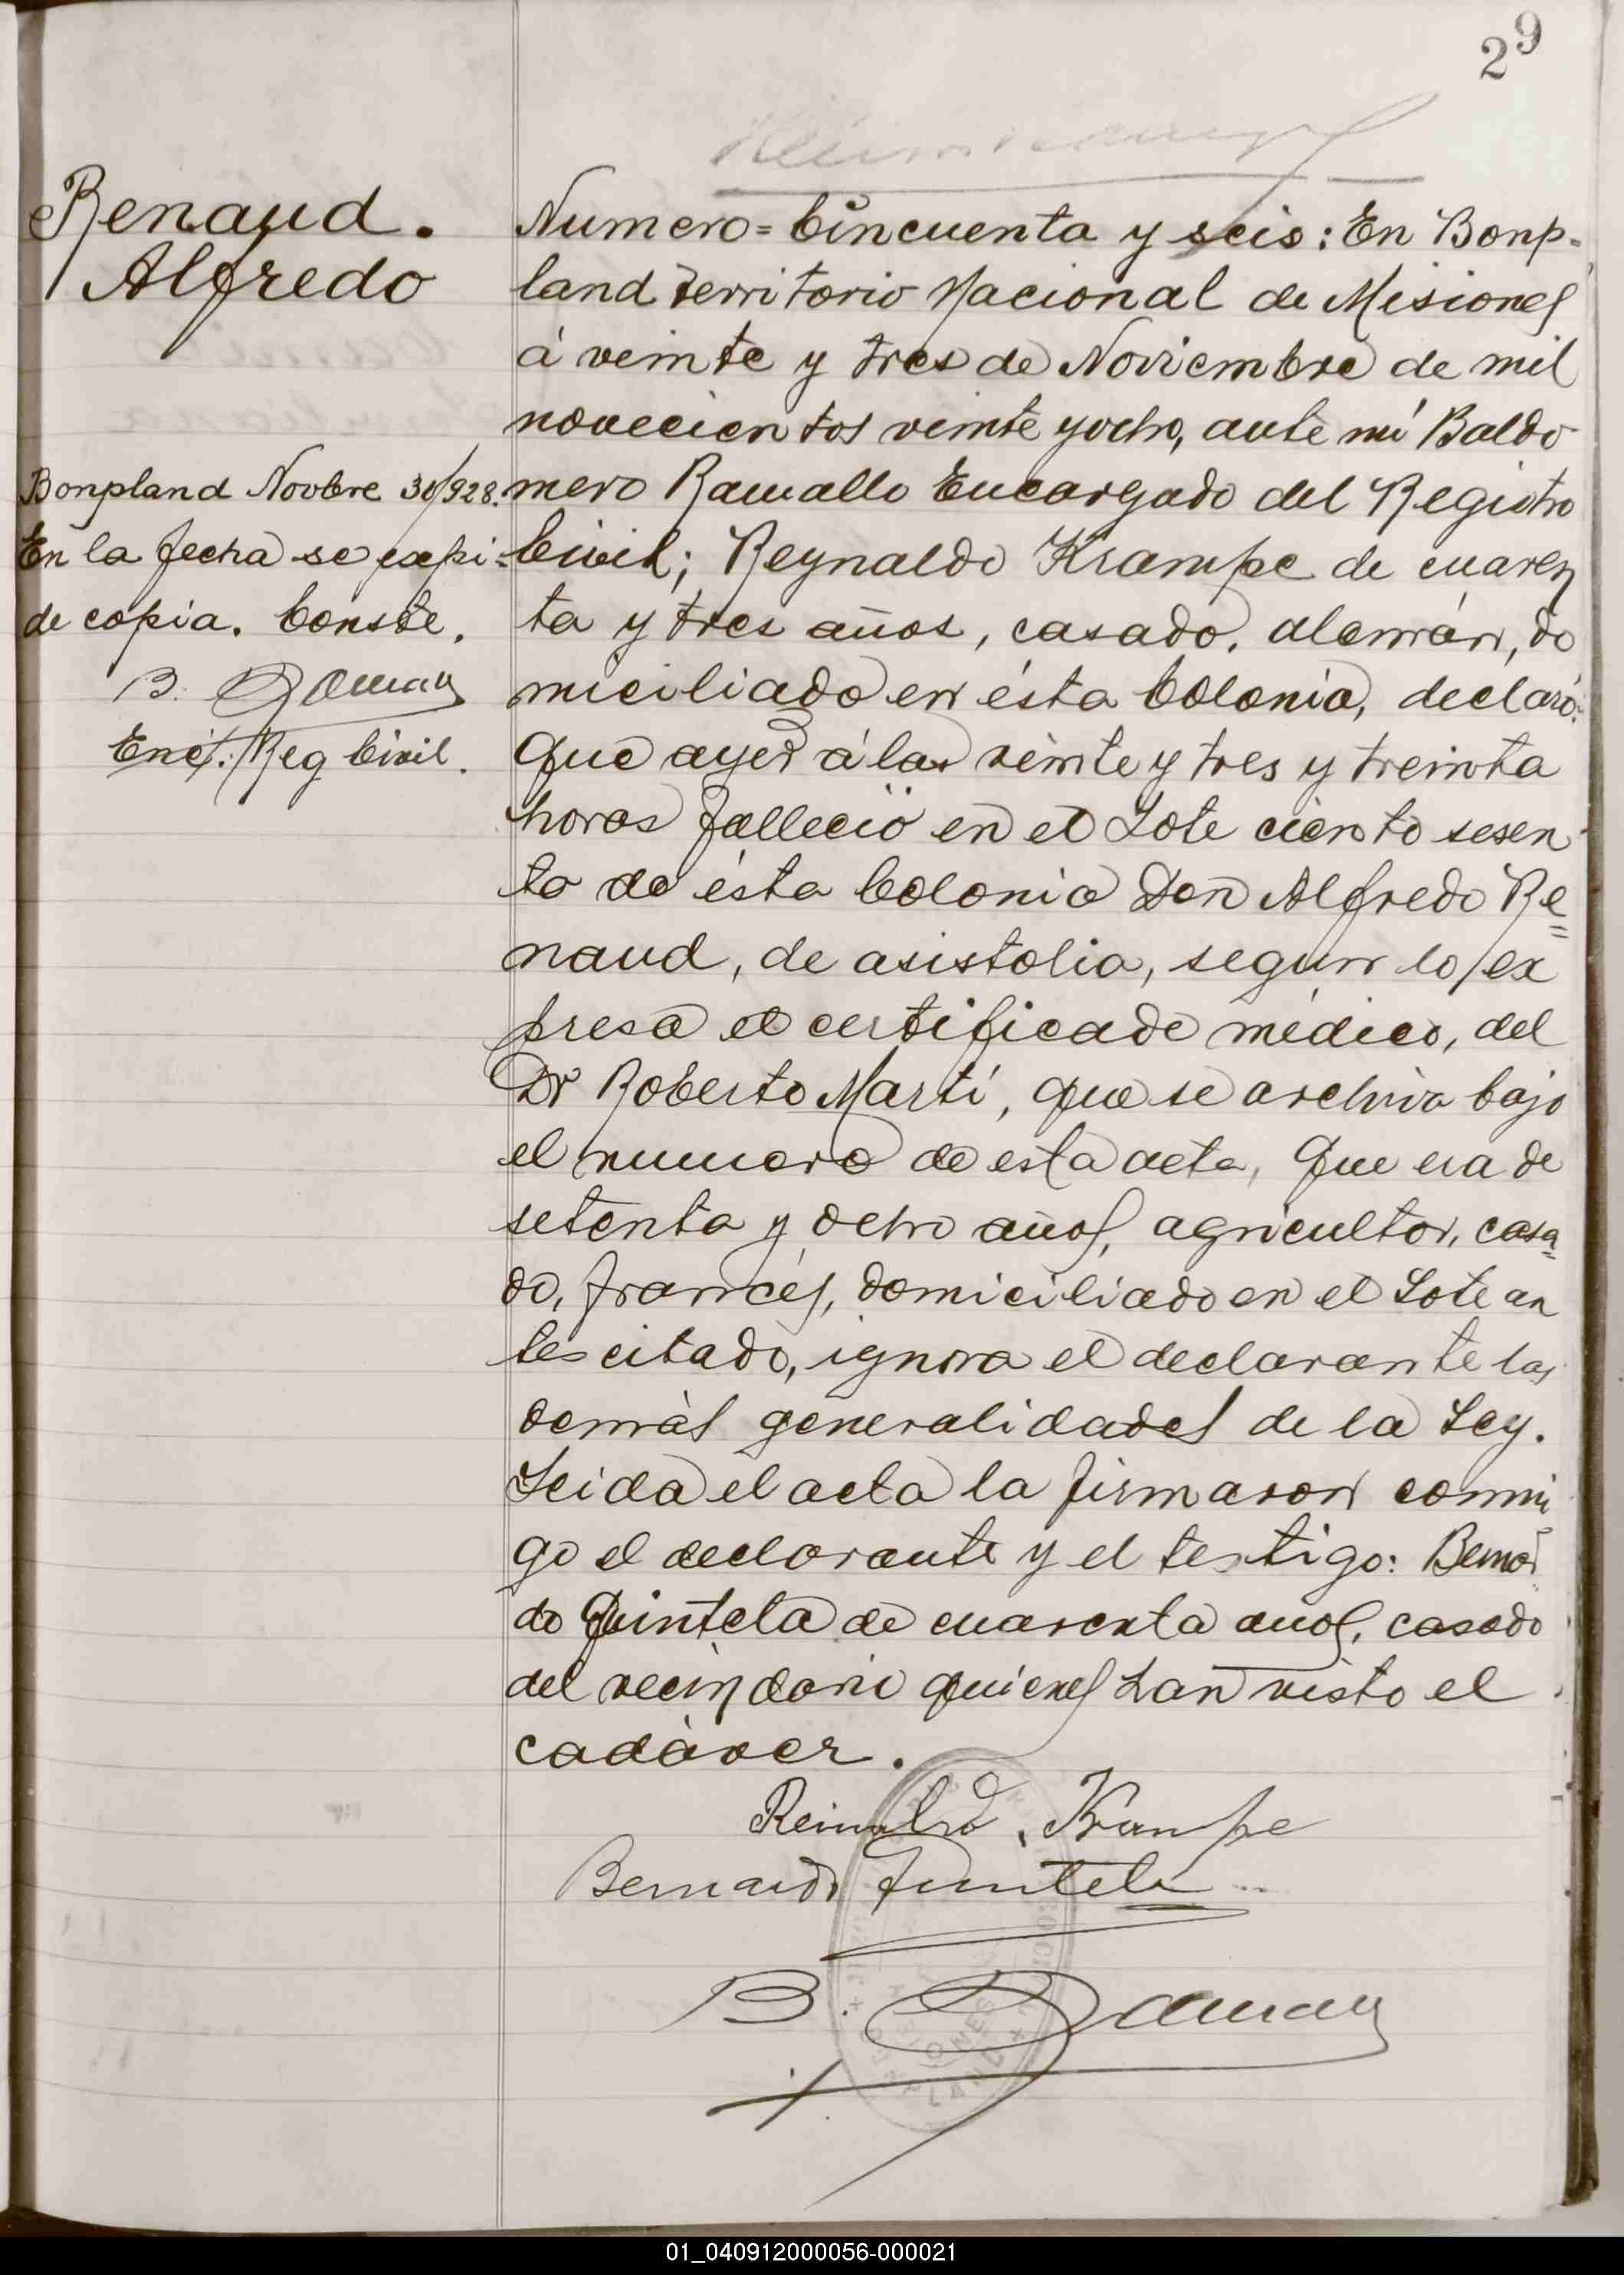 29
Renaud.
Alfredo
Bonpland Novbre 30/928.
En la fecha se expi-
de copia. Conste.
B. Ramallo
Enc. Reg Civil.
Numero = Cincuenta y seis: En Bonp-
land Territorio Nacional de Misiones
á veinte y tres de Noviembre de mil
novecientos veinte y ocho, ante mí Baldo
mero Ramallo Encargado del Registro
Civil; Reynaldo Krampe de cuaren
ta y tres años, casado, alemán, do
miciliado en ésta Colonia, declaró:
Que ayer á las veinte y tres y treinta
horas falleció en el Lote ciento sesen
ta de ésta Colonia Don Alfredo Re=
naud, de asistolia, según lo ex
presa el certificado médico, del
Dr Roberto Martí, que se archiva bajo
el numero de esta acta, Que era de
setenta y ocho años, agricultor, casa=
do, francés, domiciliado en el Lote an
tes citado, ignora el declarante las
demàs generalidades de la Ley.
Leida el acta la firmaron conmi
go el declarante y el testigo: Bernar
do Quintela de cuarenta años, casado
del vecindario quienes han visto el
cadàver.
Reinaldo Krampe
Bernardo Quintela
B. Ramallo
MISIONES
BONPLAND
01_040912000056-000021